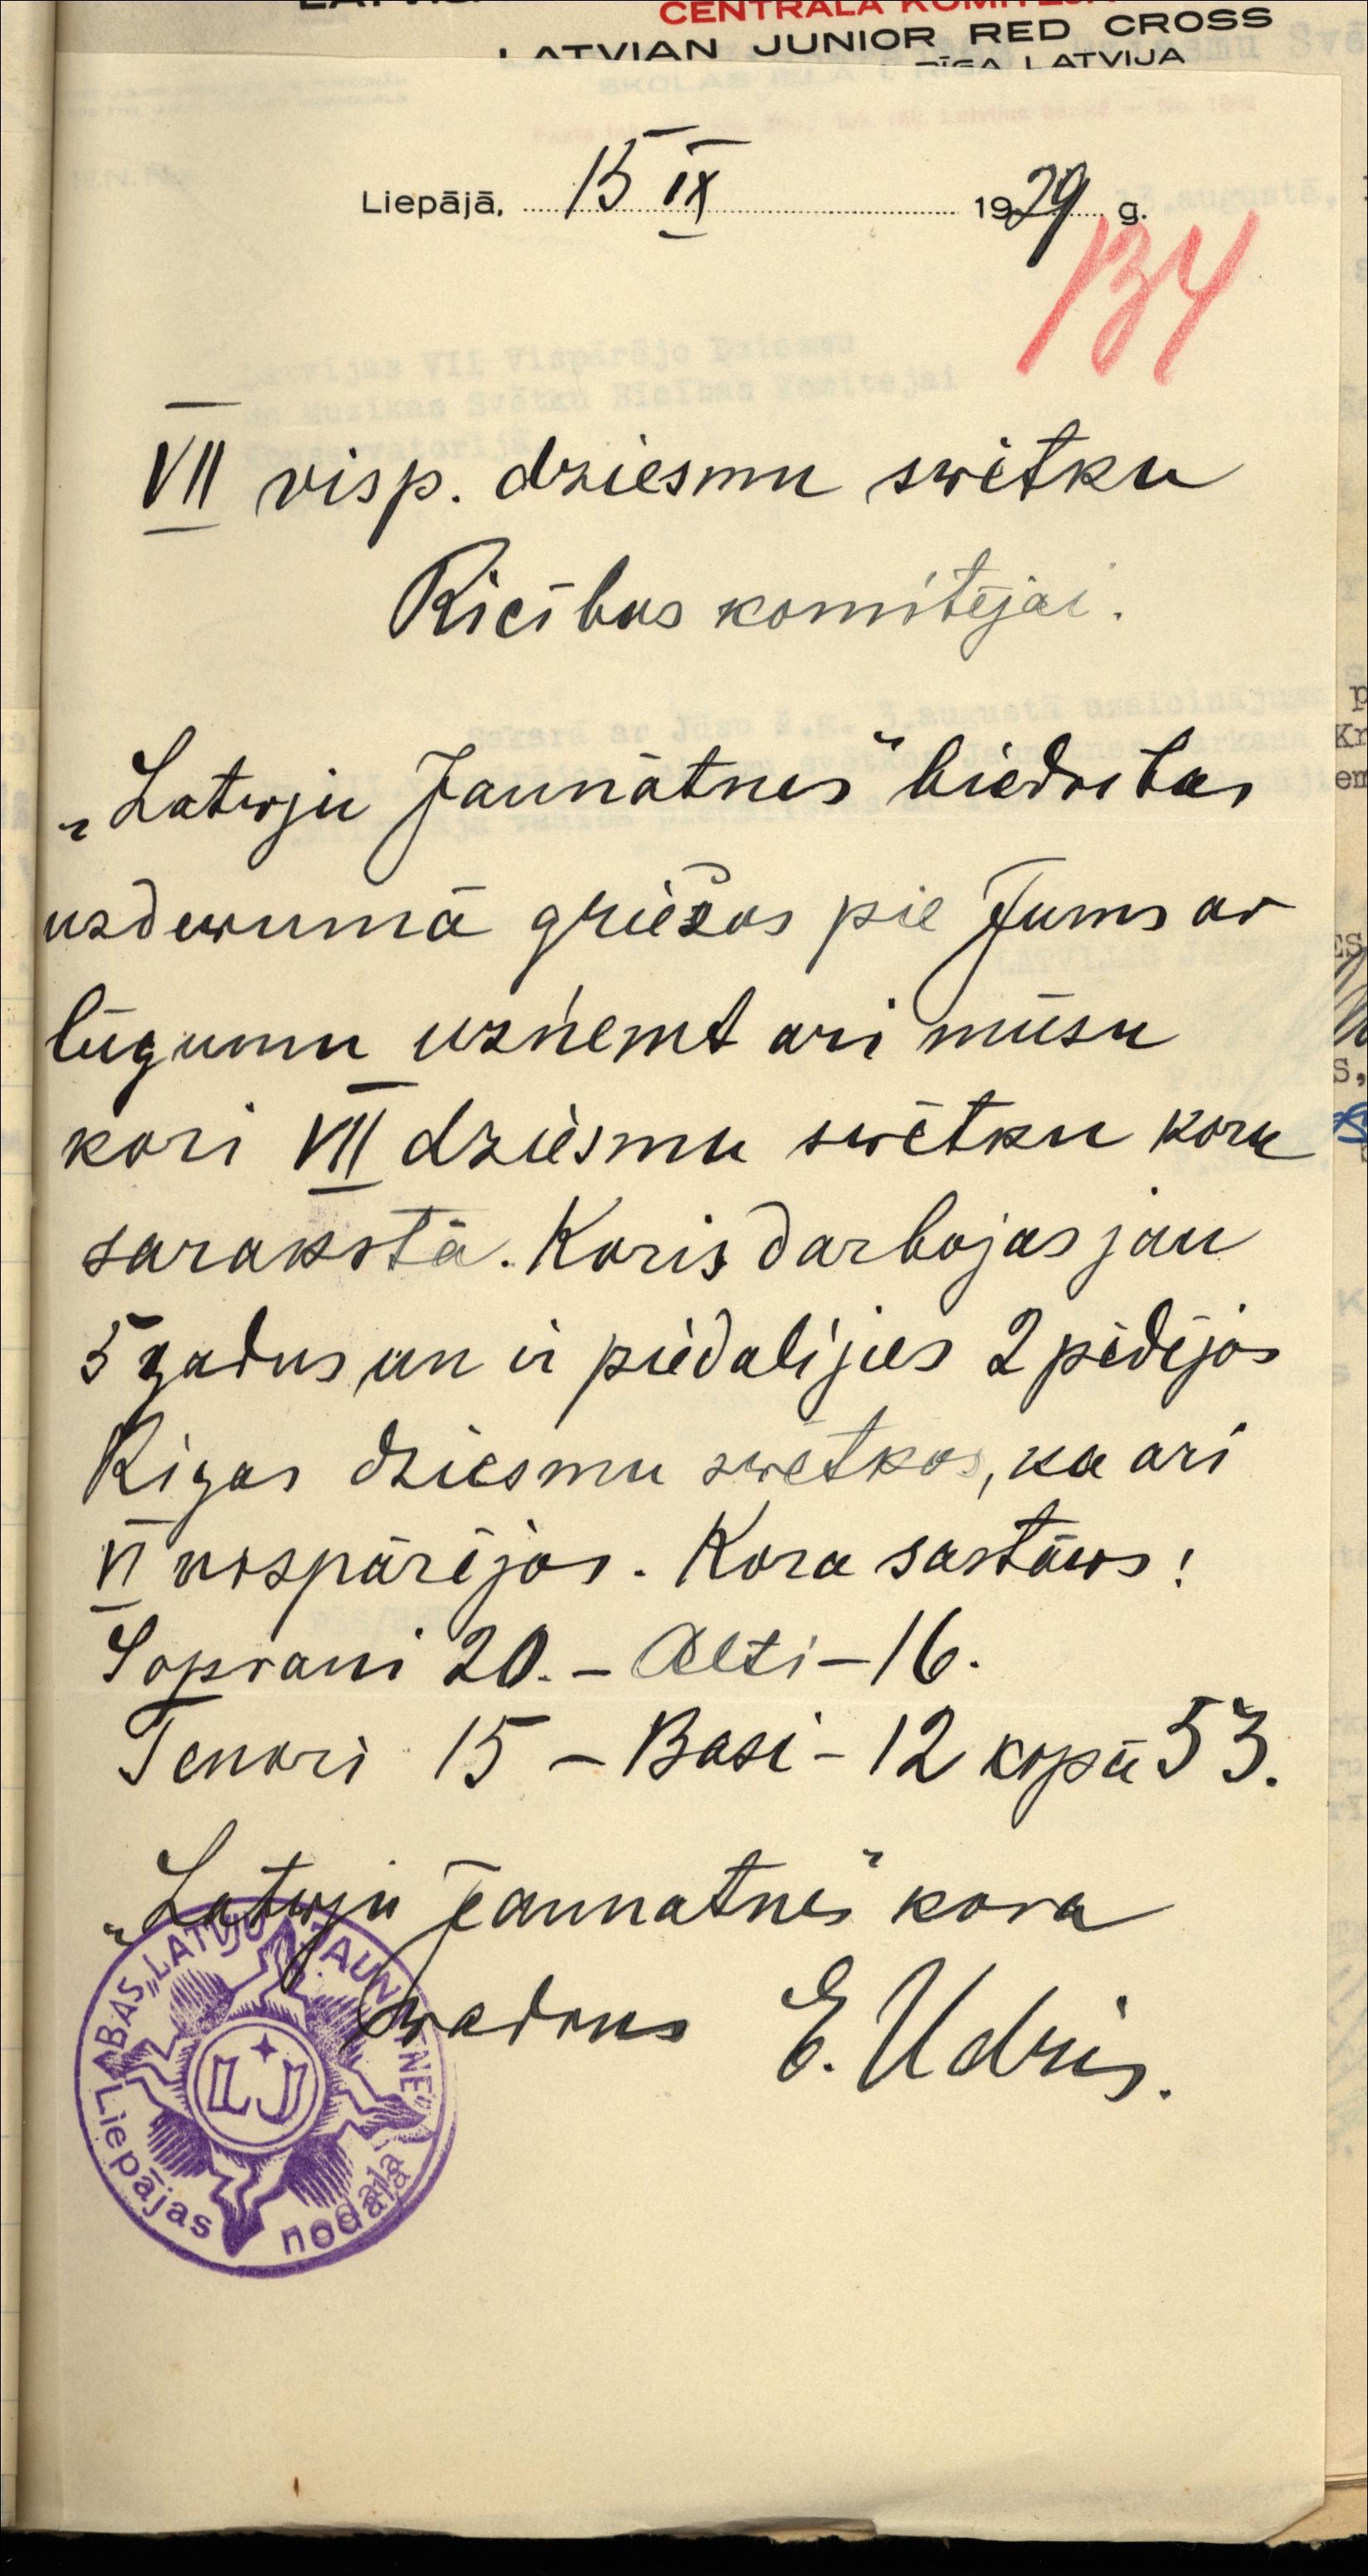 CENTRALA KOMITEJA
LATVIAN JUNIOR RED CROSS
RĪGA LATVIJA
Liepājā, 15 IX 1929 g.
134
VII visp. dziesmu swētku
Rīcības komitējai.
„Latwju Jaunātnes" biedrības
uzdewumā griežos pie Jums ar
lūgumu uzņemt arī mūsu
kori VII dziesmu swētku koru
sarakstā. Koris darbojas jau
5 gadus un ir piedalījies 2 pēdējos
Rīgas dziesmu swētkos, kā arī
VI vispārējos. Kora sastāws:
Soprani 20. – Alti – 16.
Tenori 15 – Basi – 12 kopā 53.
„Latwju Jaunatnes" kora
wadons E. Udris.
BAS „LATVJU JAUNATNE"
LJ
Liepājas nodaļa